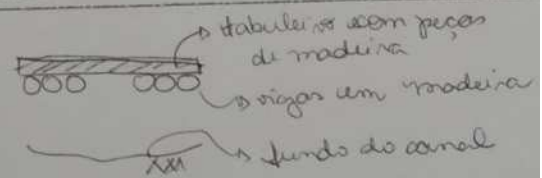 tabuleiro com peças
de madeira
vigas em madeira
fundo do canal